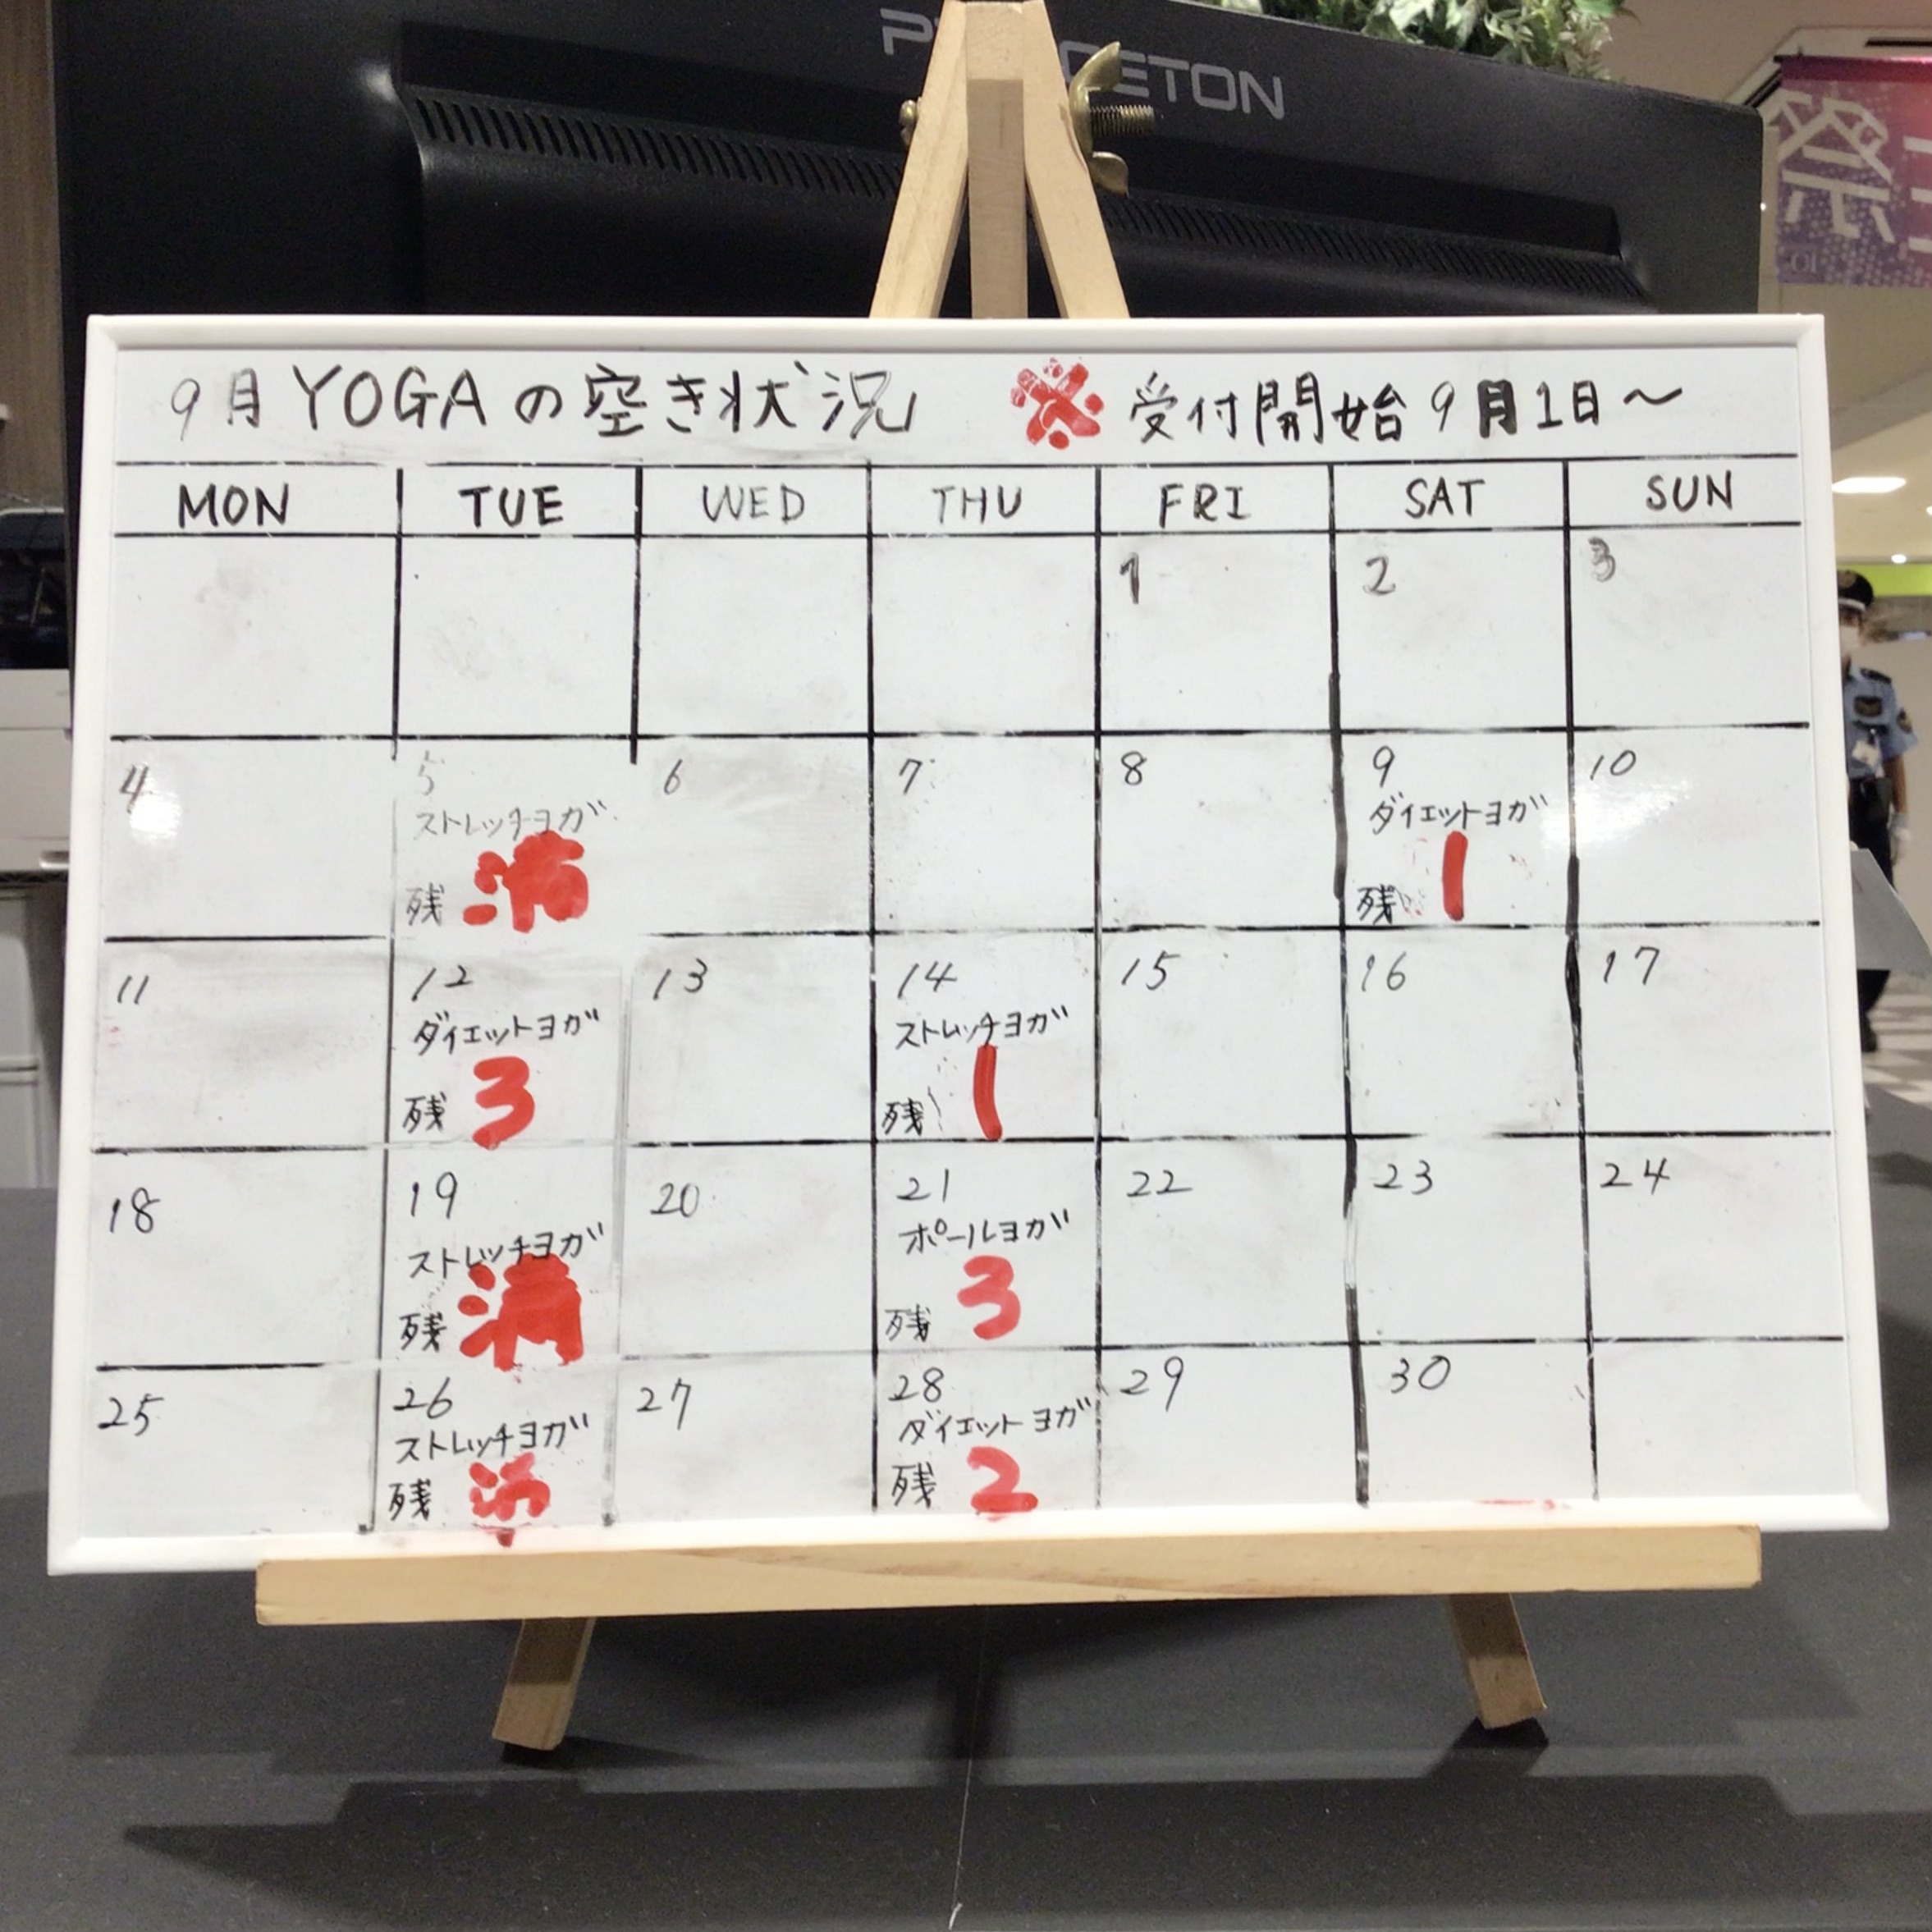 PRINCETON
祭
9月 YOGA の空き状況 ※ 受付開始 9月1日〜
MON TUE WED THU FRI SAT SUN
1 2 3
4 5 6 7 8 9 10
ストレッチヨガ ダイエットヨガ
残 満 残 1
11 12 13 14 15 16 17
ダイエットヨガ ストレッチヨガ
残 3 残 1
18 19 20 21 22 23 24
ストレッチヨガ ポールヨガ
残 満 残 3
25 26 27 28 29 30
ストレッチヨガ ダイエットヨガ
残 満 残 2